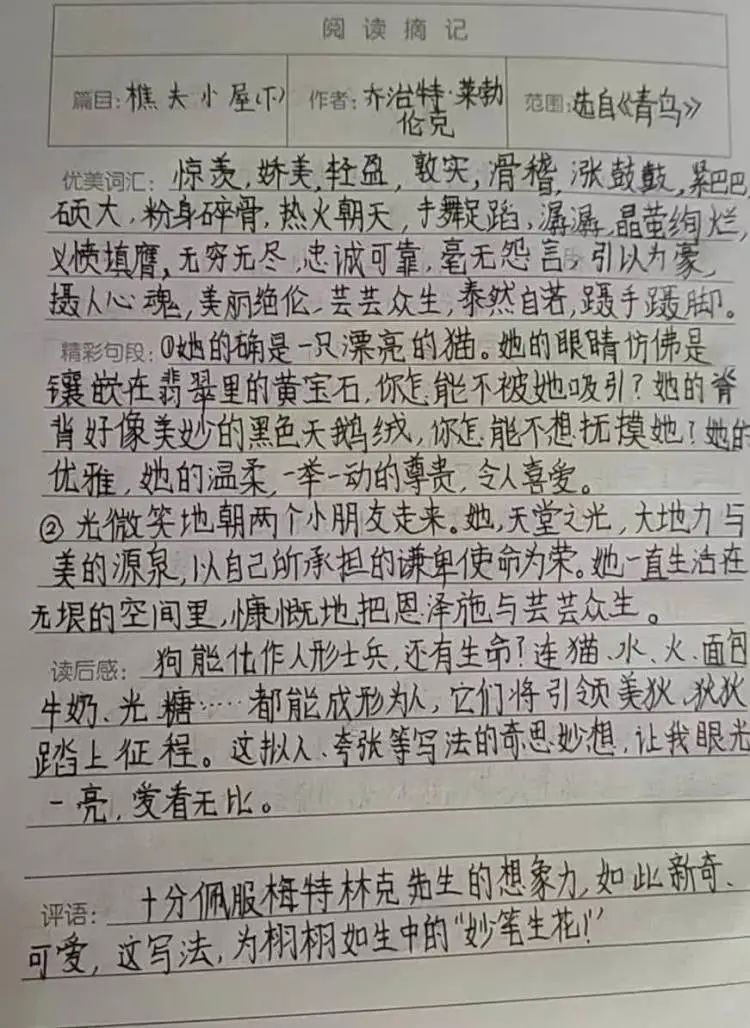 阅读摘记
篇目:樵夫小屋(下) 作者:乔治特·莱勃伦克 范围:选自《青鸟》
优美词汇:惊羡,娇美,轻盈,敦实,滑稽,涨鼓鼓,紧巴巴,
硕大,粉身碎骨,热火朝天,手舞足蹈,潺潺,晶莹绚烂,
义愤填膺,无穷无尽,忠诚可靠,毫无怨言,引以为豪,
摄人心魂,美丽绝伦、芸芸众生,泰然自若,蹑手蹑脚。
精彩句段:①她的确是一只漂亮的猫。她的眼睛仿佛是
镶嵌在翡翠里的黄宝石,你怎能不被她吸引?她的脊
背好像美妙的黑色天鹅绒,你怎能不想抚摸她?她的
优雅,她的温柔,一举一动的尊贵,令人喜爱。
②光微笑地朝两个小朋友走来。她,天堂之光,大地力与
美的源泉,以自己所承担的谦卑使命为荣。她一直生活在
无垠的空间里,慷慨地把恩泽施与芸芸众生。
读后感:狗能化作人形士兵,还有生命?连猫、水、火、面包
牛奶、光、糖……都能成形为人,它们将引领美狄、狄狄
踏上征程。这拟人、夸张等写法的奇思妙想,让我眼光
一亮,爱看无比。
评语:十分佩服梅特林克先生的想象力,如此新奇、
可爱,这写法,为栩栩如生中的“妙笔生花!”